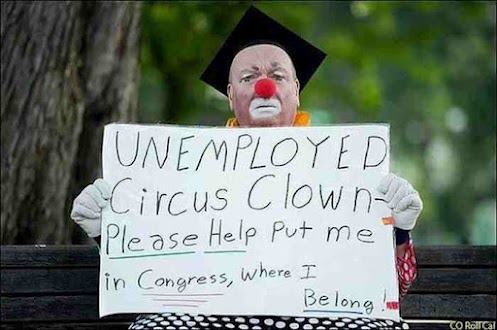 UNEMPLOYED
Circus Clown-
Please Help Put me
in Congress, where I
Belong!
CQ Roll Cal